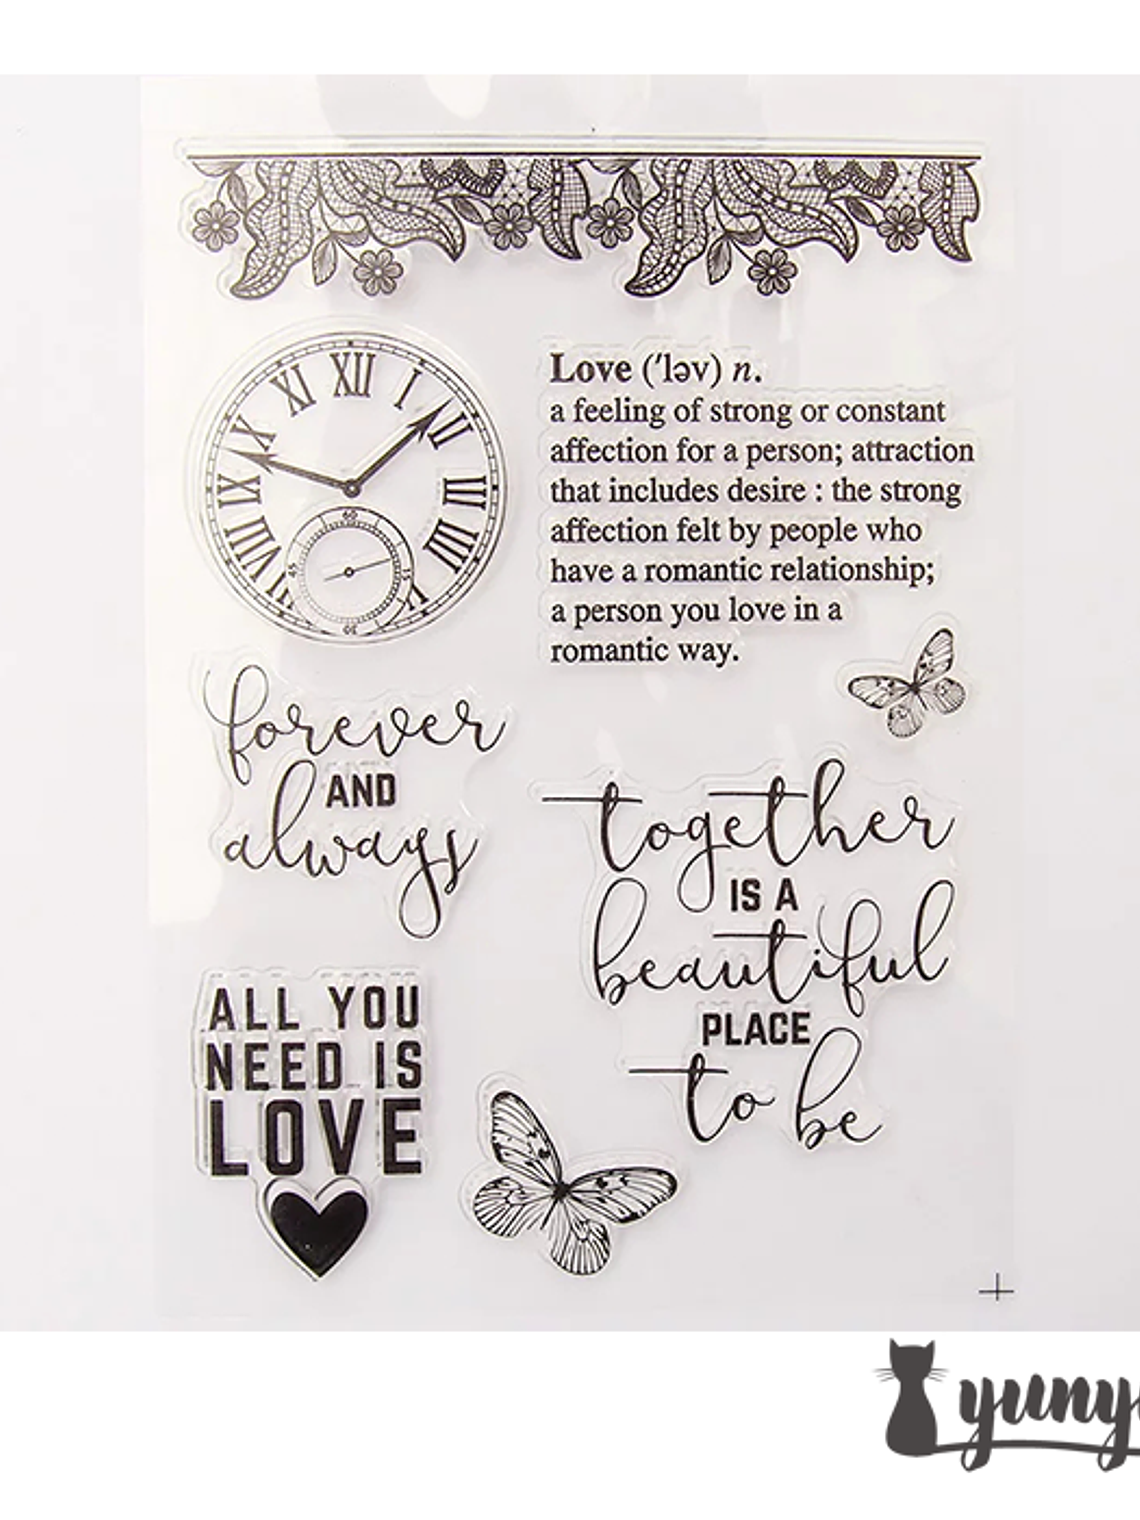 XII
I
II
III
IIII
VIII
IX
X
XI
60
15
30
45
Love ('ləv) n.
a feeling of strong or constant
affection for a person; attraction
that includes desire : the strong
affection felt by people who
have a romantic relationship;
a person you love in a
romantic way.
forever
AND
always
together
IS A
beautiful
PLACE
to be
ALL YOU
NEED IS
LOVE